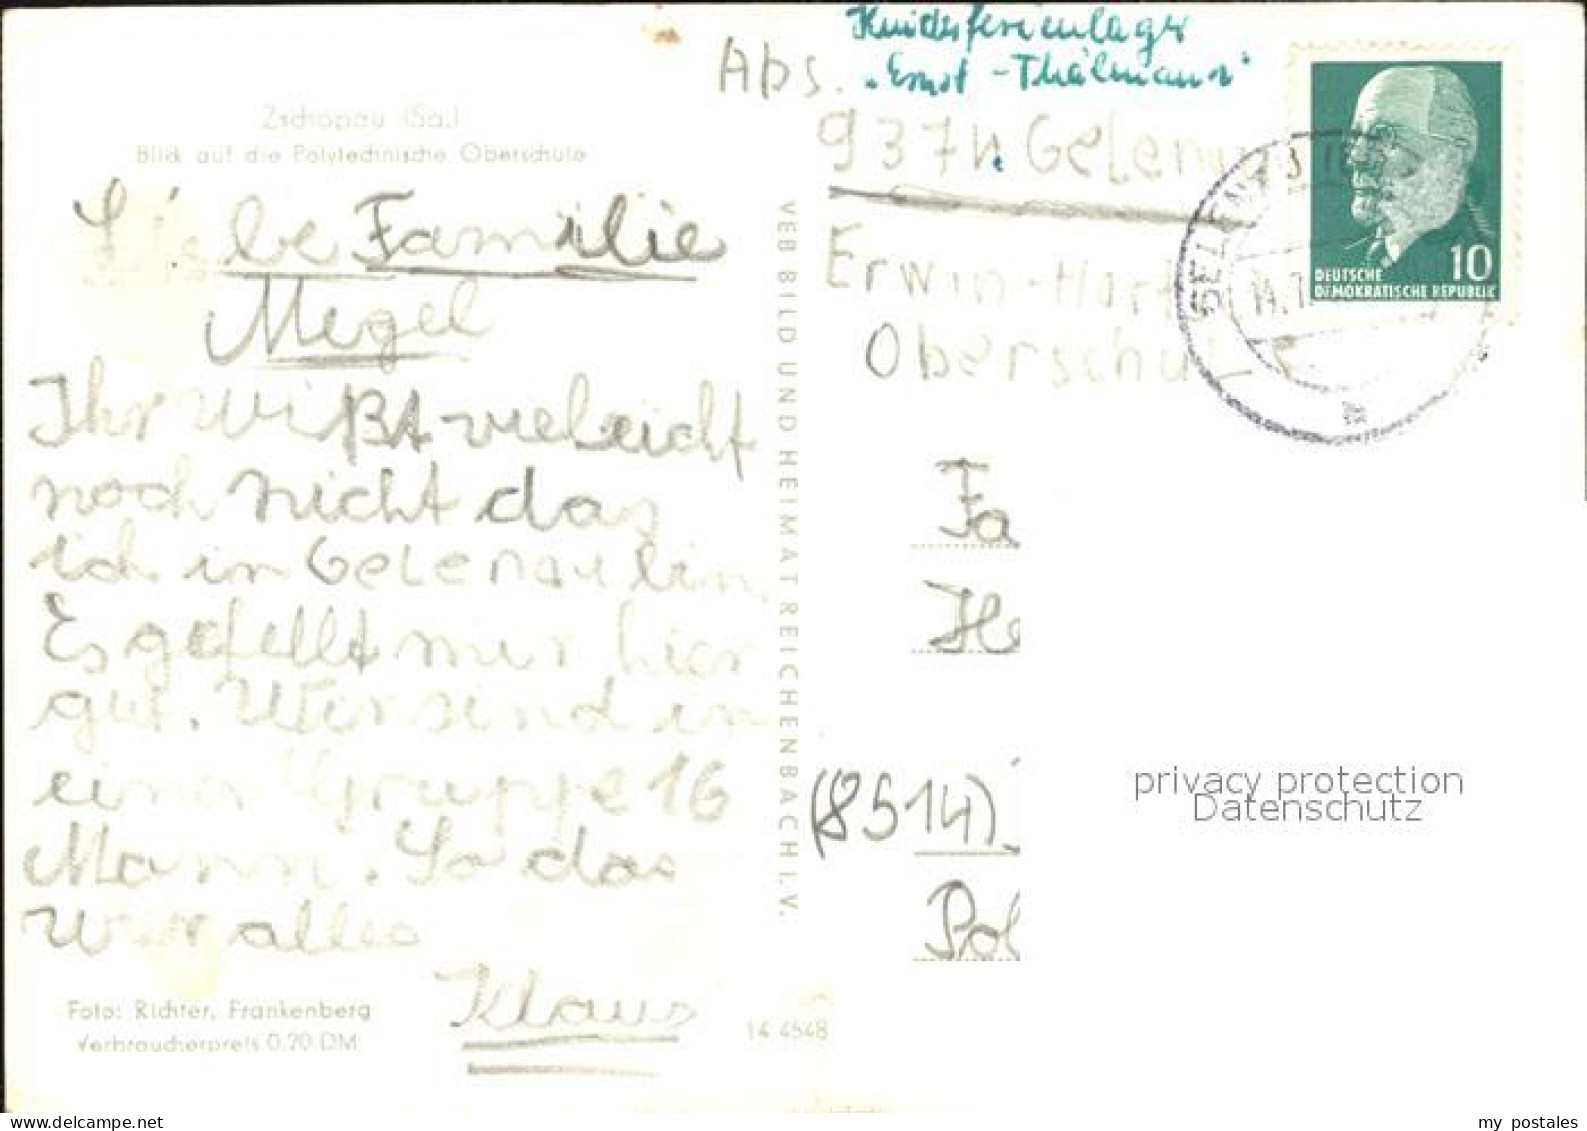 Zschopau (Sa.)
Blick auf die Polytechnische Oberschule
Liebe Familie
Megel
Ihr wißt vieleicht
noch nicht das
ich in Gelenau bin.
Es gefellt mir hier
gut. Wir sind in
einer Gruppe 16
Mann. So das
wär alles
Klaus
Foto: Richter, Frankenberg
Verbraucherpreis 0,20 DM
14 4548
VEB BILD UND HEIMAT REICHENBACH I. V.
Kinderferienlager
Abs. "Ernst-Thälmann"
9374. Gelenau
Erwin-Hart
Oberschul
DEUTSCHE 10
DEMOKRATISCHE REPUBLIK
GELENAU
14.7
a
Fa
He
(8514)
Pol
privacy protection
Datenschutz
my postales